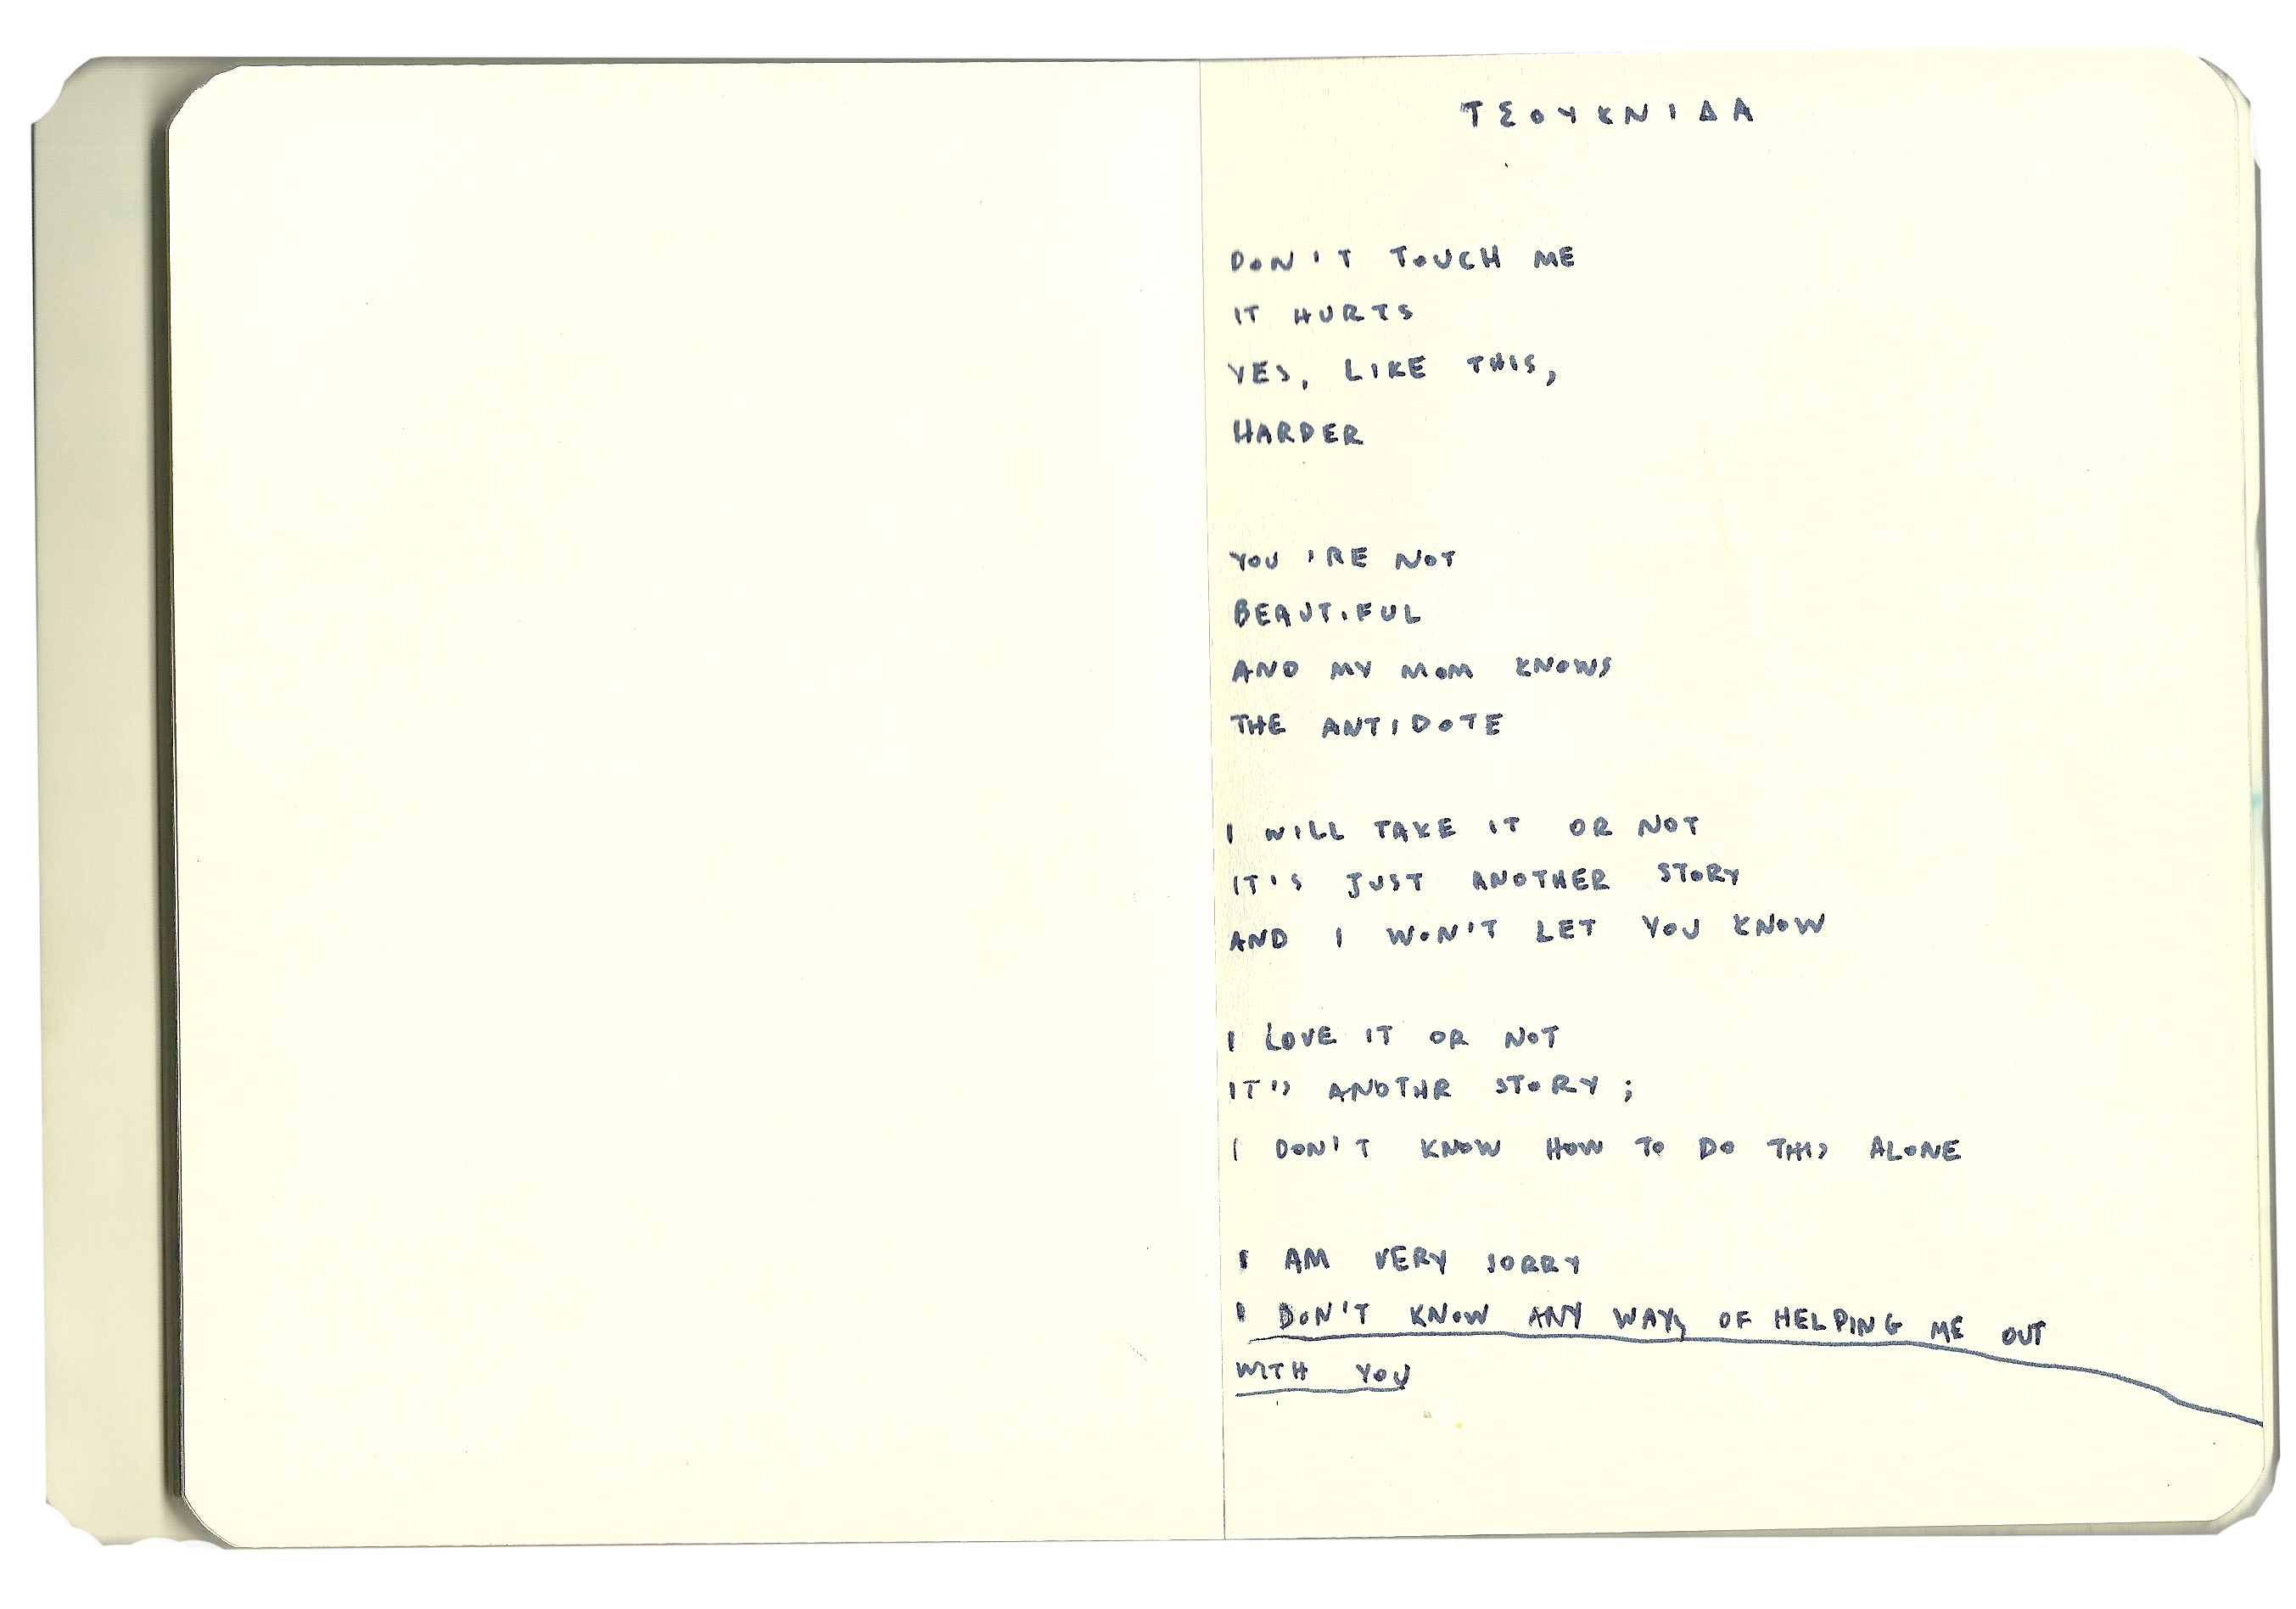 ΤΣΟΥΚΝΙΔΑ
DON'T TOUCH ME
IT HURTS
YES, LIKE THIS,
HARDER
YOU 'RE NOT
BEAUTIFUL
AND MY MOM KNOWS
THE ANTIDOTE
I WILL TAKE IT OR NOT
IT'S JUST ANOTHER STORY
AND I WON'T LET YOU KNOW
I LOVE IT OR NOT
IT'S ANOTHR STORY ;
I DON'T KNOW HOW TO DO THIS ALONE
I AM VERY SORRY
I DON'T KNOW ANY WAYS OF HELPING ME OUT
WITH YOU